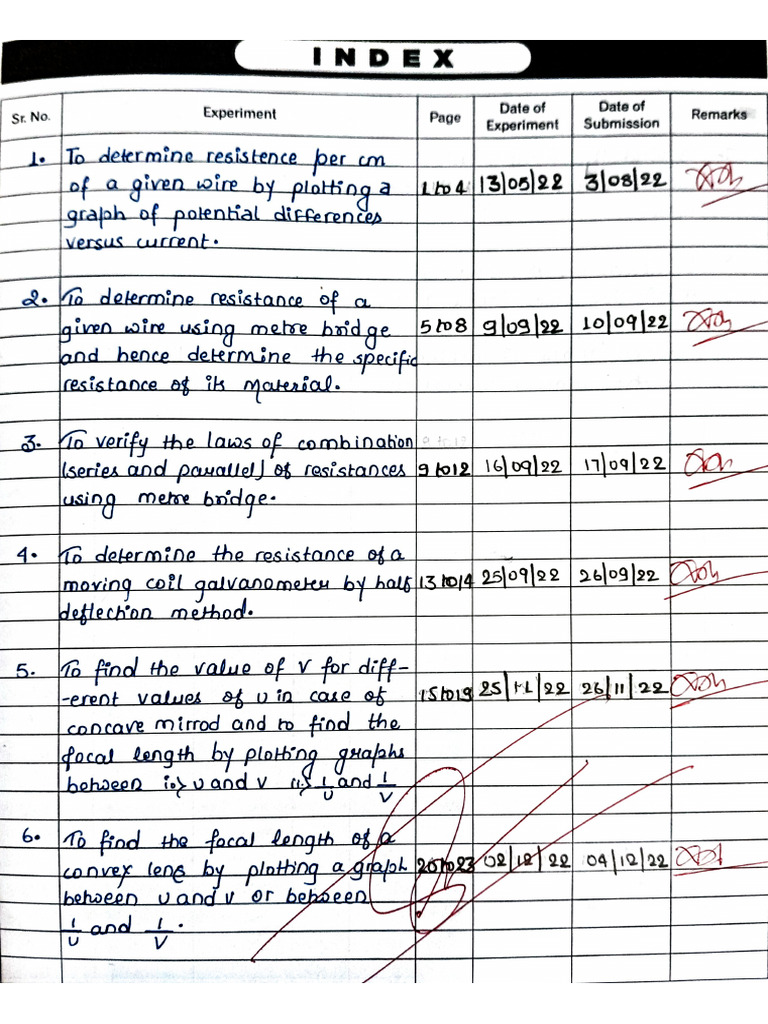 INDEX
Sr. No. Experiment Page Date of Experiment Date of Submission Remarks
1. To determine resistence per cm
of a given wire by plotting a 1 to 4 13/05/22 3/08/22
graph of potential differences
versus current.
2. To determine resistance of a
given wire using metre bridge 5 to 8 9/09/22 10/09/22
and hence determine the specific
resistance of its material.
3. To verify the laws of combination 9 to 12
(series and parallel) of resistances 9 to 12 16/09/22 17/09/22
using metre bridge.
4. To determine the resistance of a
moving coil galvanometer by half 13 to 14 25/09/22 26/09/22
deflection method.
5. To find the value of V for diff-
-erent values of U in case of 15 to 19 25/11/22 26/11/22
concave mirrod and to find the
focal length by plotting graphs
between i.> U and V ii.> 1/U and 1/V
6. To find the focal length of a
convex lens by plotting a graph 20 to 23 02/12/22 04/12/22
between U and V or between
1/U and 1/V.